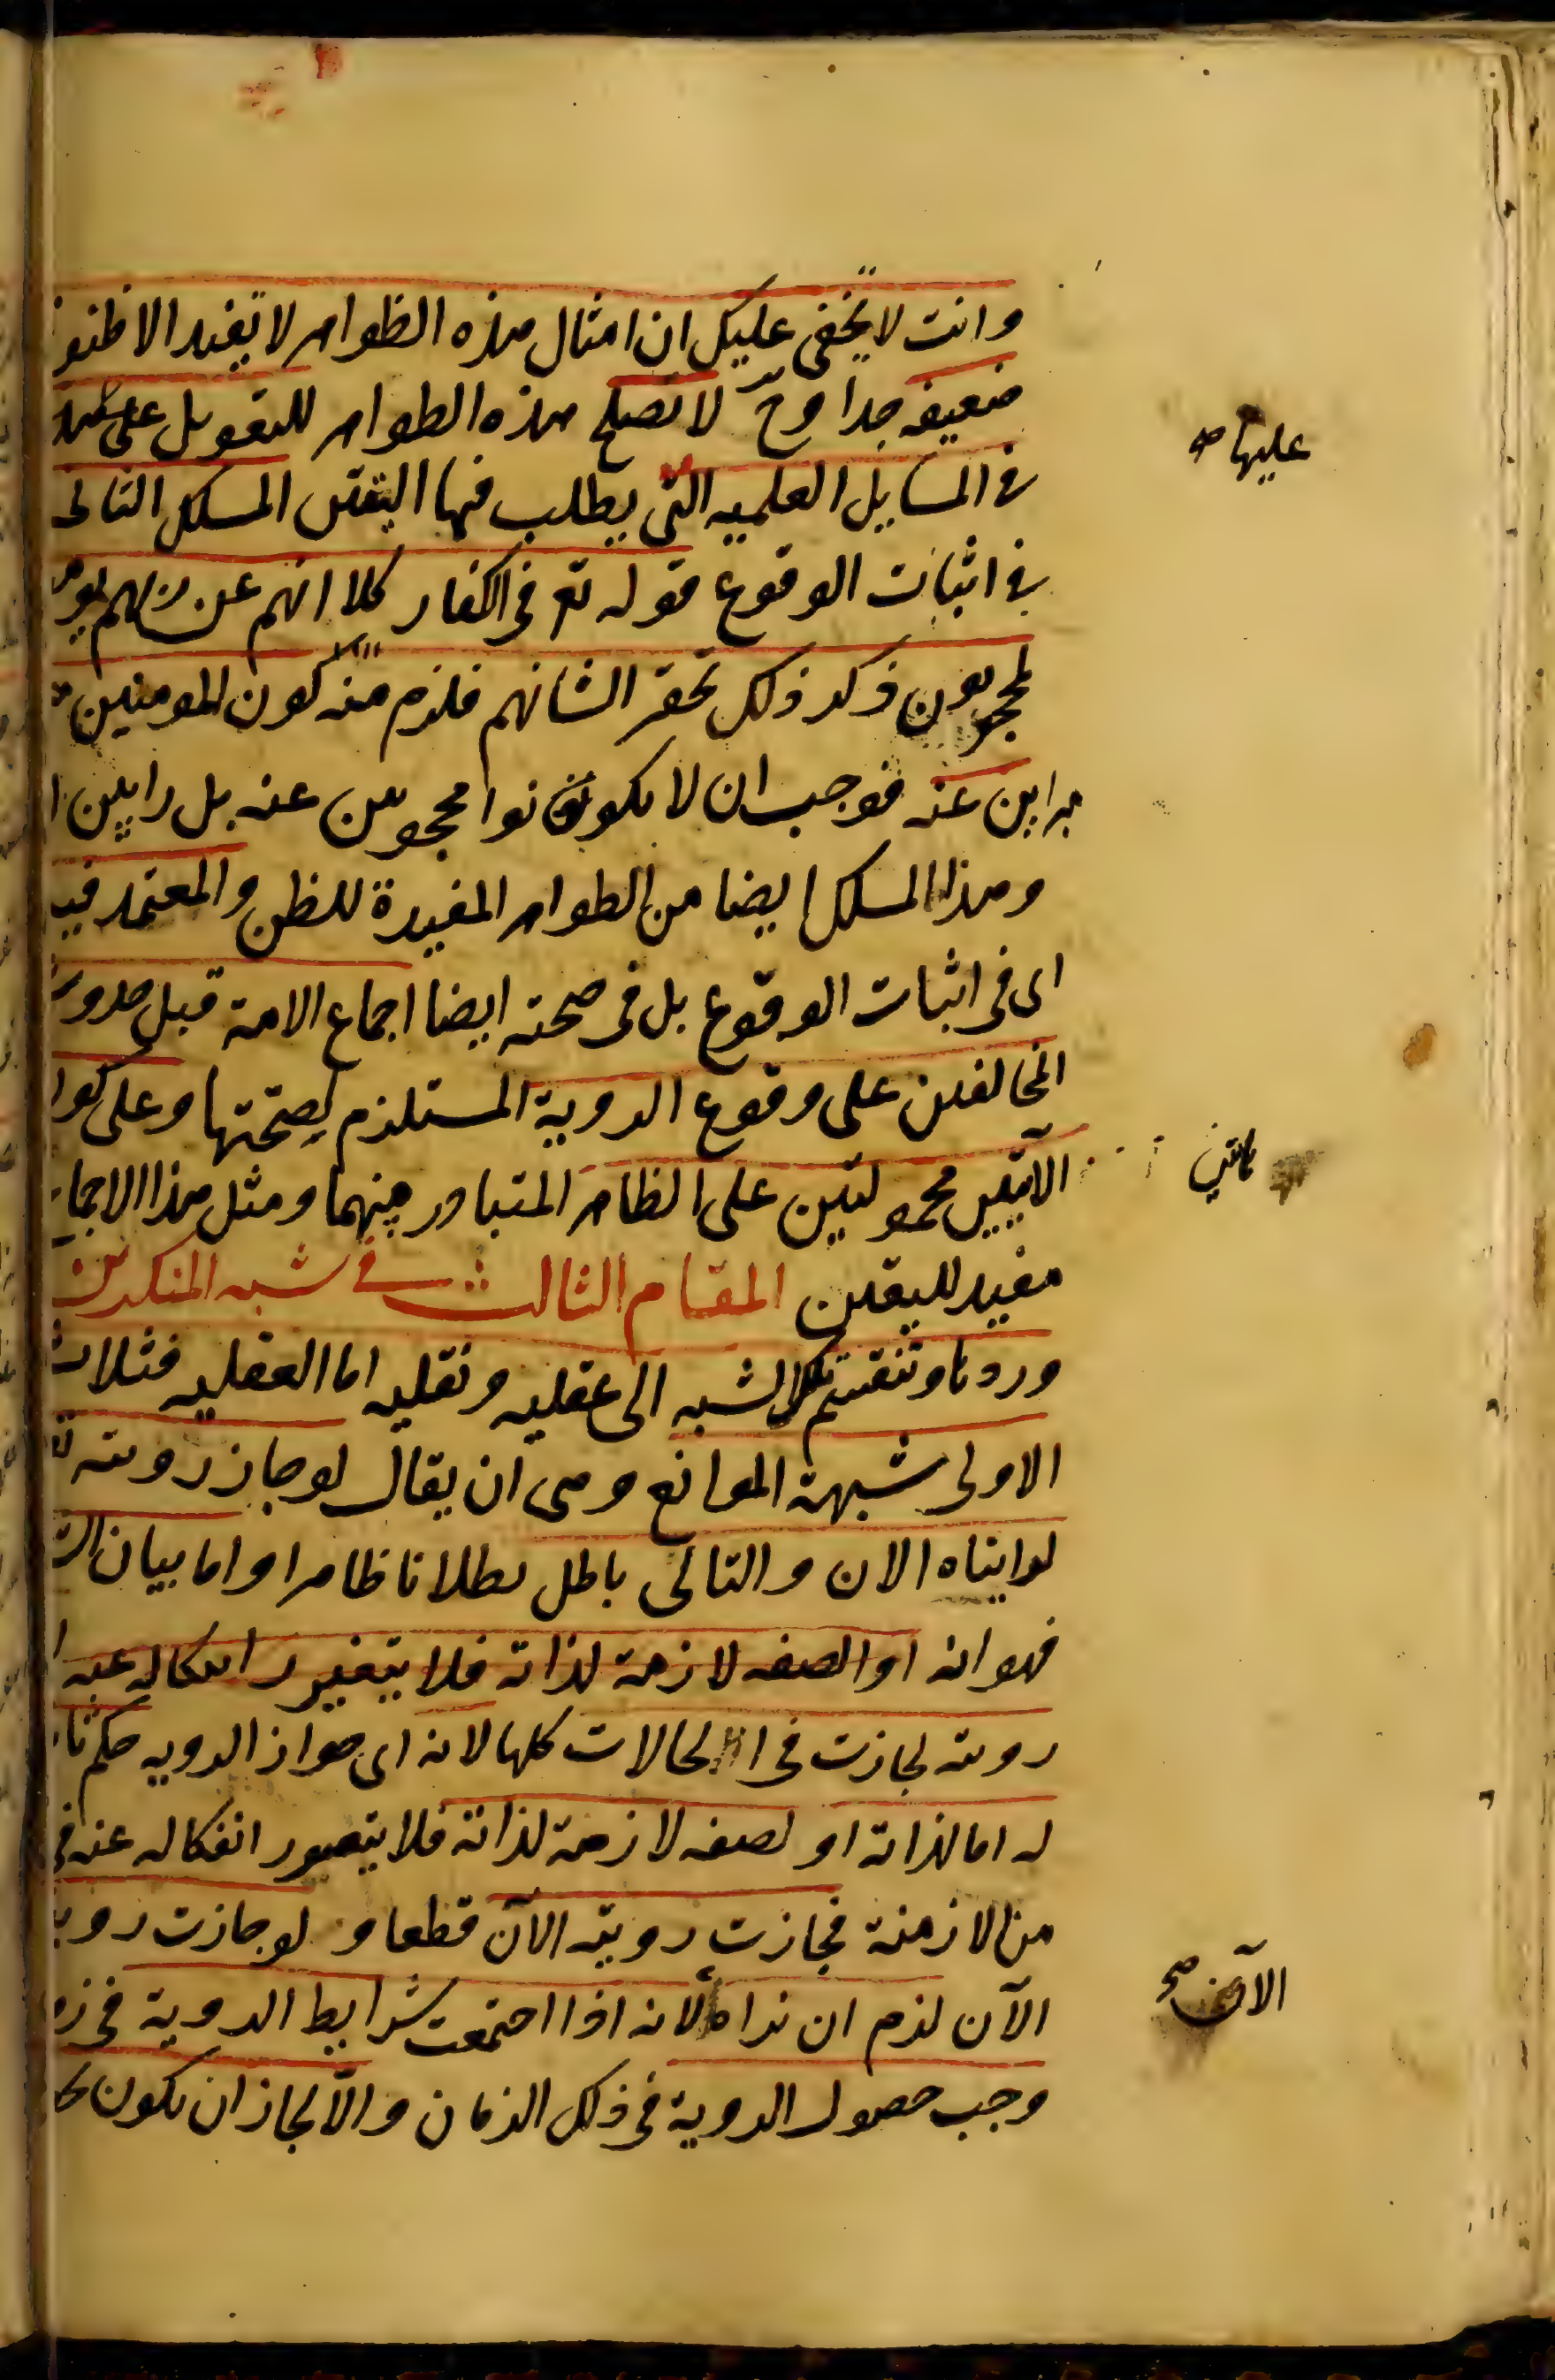 وانت لا يخفى عليك ان امثال هذه الظواهر لا تفيد الا ظنو
ضعيفه جدا وح لا تصلح هذه الظواهر للتعويل على
عليها صح
في المسايل العلميه التي يطلب فيها اليقين المسلك الثانى
في اثبات الوقوع قوله تع في الكفار كلا انهم عن ربهم يومئذ
لمحجوبون ذكر ذلك تحقيرا لشانهم فلزم منه كون المومنين
مبراين عنه فوجب ان لا يكونوا محجوبين عنه بل رايين
وهذا المسلك ايضا من الظواهر المفيدة للظن والمعتمد فيه
اى في اثبات الوقوع بل في صحته ايضا اجماع الامة قبل حدوث
المخالفين على وقوع الروية المستلزم لصحتها وعلى كو
الآيتين محمولتين على الظاهر المتبادر منهما ومثل هذا الاجما
مفيد لليقين المقام الثالث في شبه المنكرين
وردها وتنقسم تلك الشبه الى عقليه ونقليه اما العقليه فثلاث
الاولى شبهة الموانع وهى ان يقال لو جاز رويته تع
لرايناه الان والتالى باطل بطلانا ظاهرا واما بيان
فهو انه او الصفه لازمة لذاته فلا يتغير
رويته لجازت في الحالات كلها لانه اى جواز الرويه حكم ثا
له اما لذاته او لصفه لازمة لذاته فلا يتصور انفكاله عنه فى
من الازمنة فجازت رويته الآن قطعا ولو جازت رويـ
الآن لزم ان نراه لانه اذا اجتمعت شرايط الروية فى
الآن صح
وجب حصول الروية فى ذلك الزمان والا لجاز ان يكون